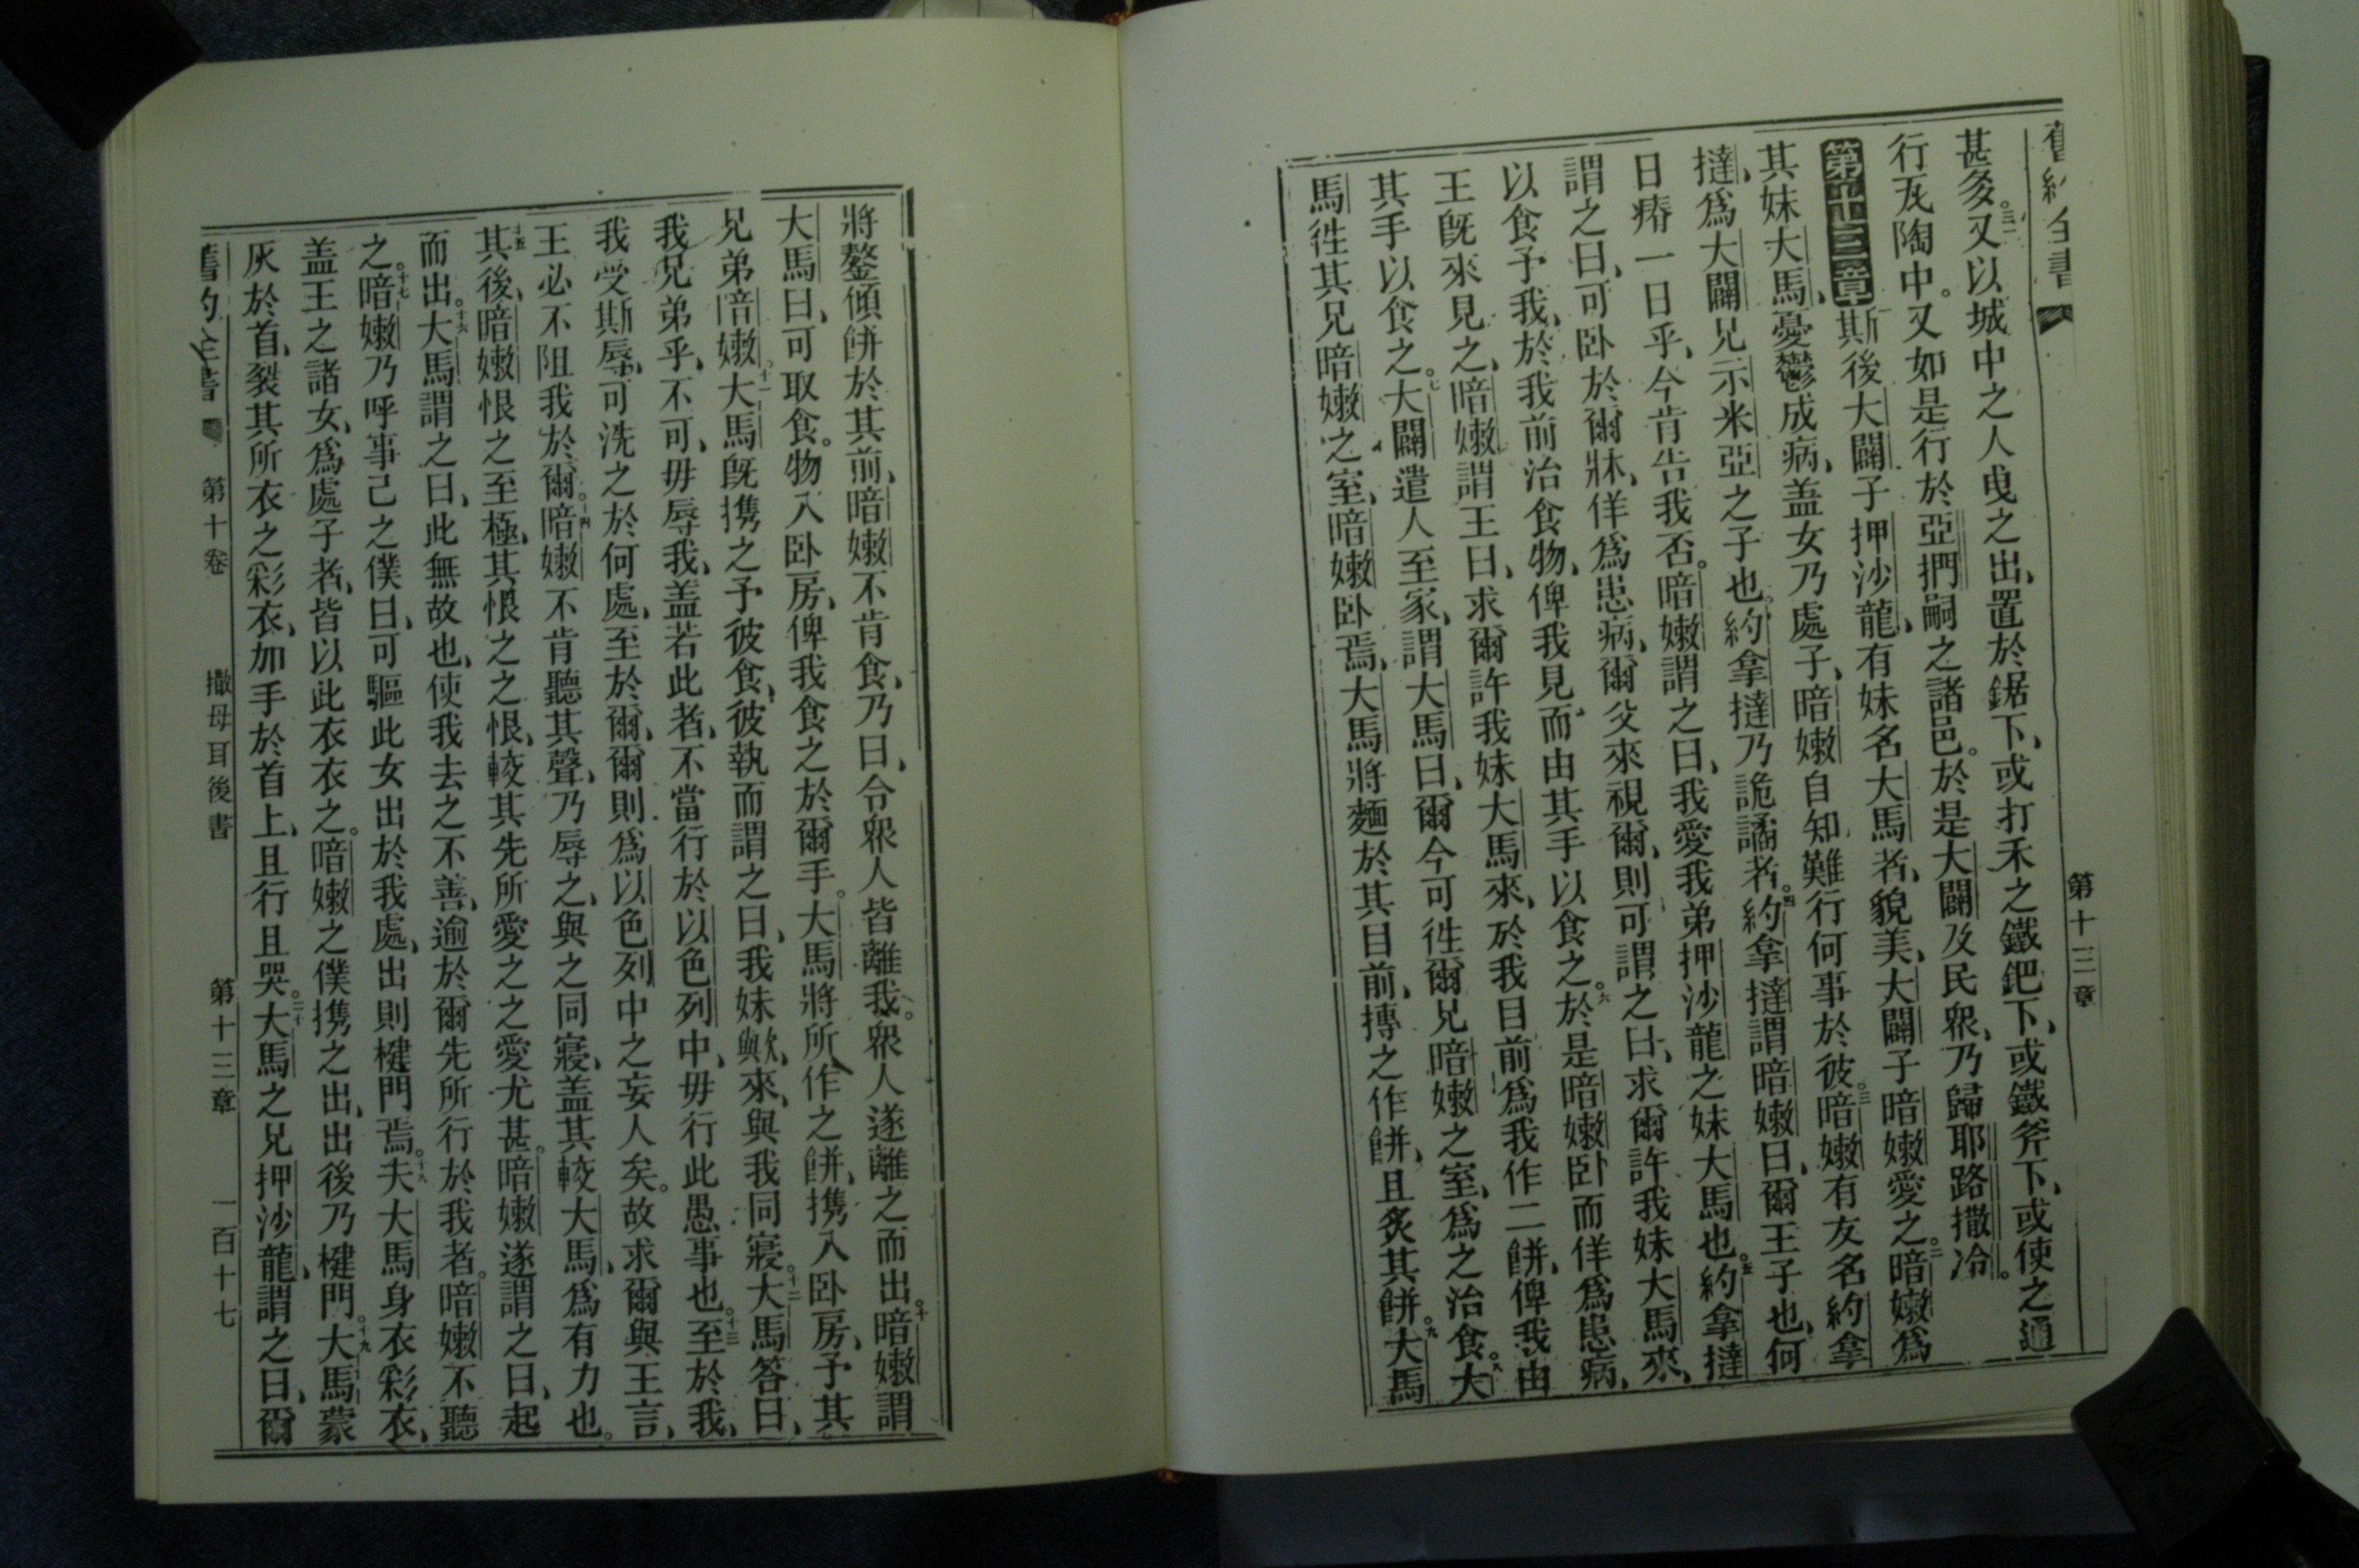 舊約全書 第十三章
甚多。三一又以城中之人曵之出、置於鋸下、或打禾之鐵鈀下、或鐵斧下、或使之通
行瓦陶中。又如是行於亞捫嗣之諸邑。於是大闢及民衆、乃歸耶路撒冷。
第十三章 斯後大闢子押沙龍、有妹名大馬者、貌美、大闢子暗嫩愛之。二暗嫩爲
其妹大馬、憂鬱成病、盖女乃處子、暗嫩自知難行何事於彼。三暗嫩有友名約拿
撻、爲大闢兄示米亞之子也。約拿撻乃詭譎者。四約拿撻謂暗嫩曰、爾王子也、何
日瘠一日乎、今肯告我否。暗嫩謂之曰、我愛我弟押沙龍之妹大馬也。五約拿撻
謂之曰、可卧於爾牀、佯爲患病、爾父來視爾、則可謂之曰、求爾許我妹大馬來、
以食予我、於我前治食物、俾我見而由其手以食之。六於是暗嫩卧而佯爲患病、
王旣來見之、暗嫩謂王曰、求爾許我妹大馬來、於我目前爲我作二餅、俾我由
其手以食之。七大闢遣人至家、謂大馬曰、爾今可徃爾兄暗嫩之室、爲之治食。八大
馬徃其兄暗嫩之室、暗嫩卧焉、大馬將麵於其目前、摶之作餅、且炙其餅。九大馬
將鏊傾餅於其前、暗嫩不肯食、乃曰、令衆人皆離我。衆人遂離之而出。十暗嫩謂
大馬曰、可取食。物入卧房、俾我食之於爾手。大馬將所作之餅、携入卧房、予其
兄弟暗嫩。十一大馬旣携之予彼食、彼執而謂之曰、我妹歟、來、與我同寢。十二大馬答曰、
我兄弟乎、不可、毋辱我、盖若此者、不當行於以色列中、毋行此愚事也。十三至於我、
我受斯辱、可洗之於何處、至於爾、爾則爲以色列中之妄人矣。故求爾與王言、
王必不阻我於爾。十四暗嫩不肯聽其聲、乃辱之、與之同寢、盖其較大馬、爲有力也。
十五其後、暗嫩恨之至極、其恨之之恨、較其先所愛之之愛尤甚。暗嫩遂謂之曰、起
而出。十六大馬謂之曰、此無故也、使我去之不善、逾於爾先所行於我者。暗嫩不聽
之。十七暗嫩乃呼事己之僕曰、可驅此女出於我處、出則楗門焉。十八夫大馬身衣彩衣、
盖王之諸女、爲處子者、皆以此衣衣之。暗嫩之僕携之出、出後乃楗門。十九大馬蒙
灰於首、裂其所衣之彩衣、加手於首上、且行且哭。二十大馬之兄押沙龍、謂之曰、爾
舊約全書 第十卷 撒母耳後書 第十三章 一百十七